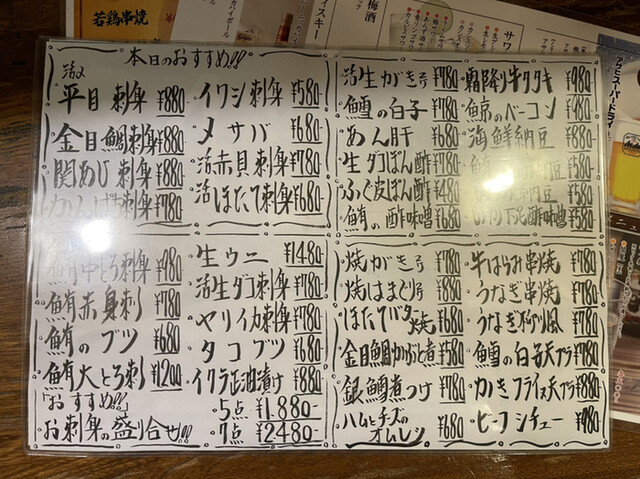 若鶏串焼
梅酒
サワー
アサヒスーパードライ
本日のおすすめ!!!
活〆
平目刺身 ¥880
金目鯛刺身 ¥880
関あじ刺身 ¥880
かんぱち刺身 ¥780
イワシ刺身 ¥580
〆サバ ¥680
活赤貝刺身 ¥780
活ほたて刺身 ¥680
活生がき(1ヶ) ¥780
鱈の白子 ¥780
あん肝 ¥680
生ダコぽん酢 ¥780
ふぐ皮ぽん酢 ¥480
鮪の酢味噌 ¥680
霜降り牛タタキ ¥980
鯨のベーコン ¥980
海鮮納豆 ¥880
納豆 ¥580
¥580
鮪中とろ刺身 ¥980
鮪赤身刺 ¥780
鮪のブツ ¥680
鮪大とろ刺 ¥1200
生ウニ ¥1480
活生ダコ刺身 ¥780
ヤリイカ刺身 ¥780
タコブツ ¥680
イクラ正油漬け ¥880
「おすすめ!!!」
お刺身の盛り合せ!!!
5点 ¥1.880-
7点 ¥2480-
焼がき ¥780
焼はまぐり ¥880
ほたてバター焼 ¥680
金目鯛かぶと煮 ¥580
銀鱈煮つけ ¥780
ハムとチーズの
オムレツ ¥680
牛はらみ串焼 ¥780
うなぎ串焼 ¥580
うなぎ柳川風 ¥780
鱈の白子天プラ ¥980
かきフライ又天プラ ¥880
ビーフシチュー ¥980